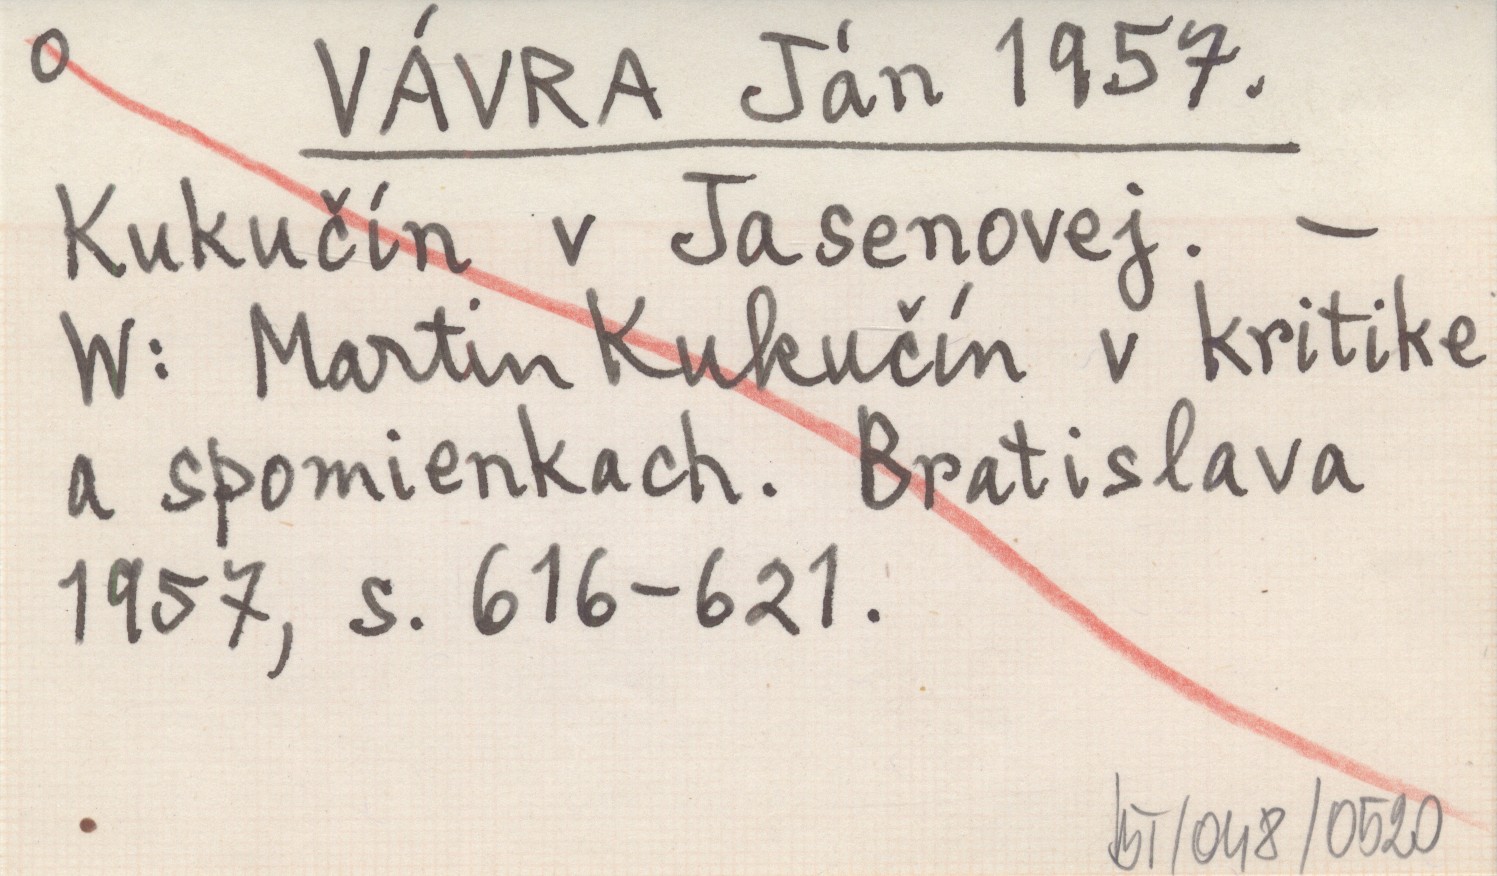 O
VÁVRA Ján 1957.
Kukučín v Jasenovej. –
W: Martin Kukučín v kritike
a spomienkach. Bratislava
1957, s. 616–621.
/048/0520